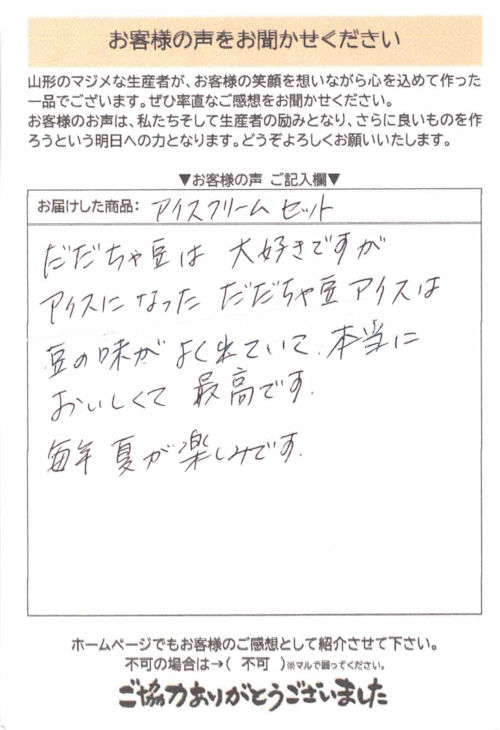 お客様の声をお聞かせください
山形のマジメな生産者が、お客様の笑顔を想いながら心を込めて作った
一品でございます。ぜひ率直なご感想をお聞かせください。
お客様のお声は、私たちそして生産者の励みとなり、さらに良いものを作
ろうという明日への力となります。どうぞよろしくお願いいたします。
▼お客様の声 ご記入欄▼
お届けした商品: アイスクリームセット
だだちゃ豆は 大好きですが
アイスになった だだちゃ豆アイスは
豆の味が よく出ていて、本当に
おいしくて 最高です.
毎年 夏が楽しみです.
ホームページでもお客様のご感想として紹介させて下さい。
不可の場合は→( 不可 )※マルで囲ってください。
ご協力ありがとうございました